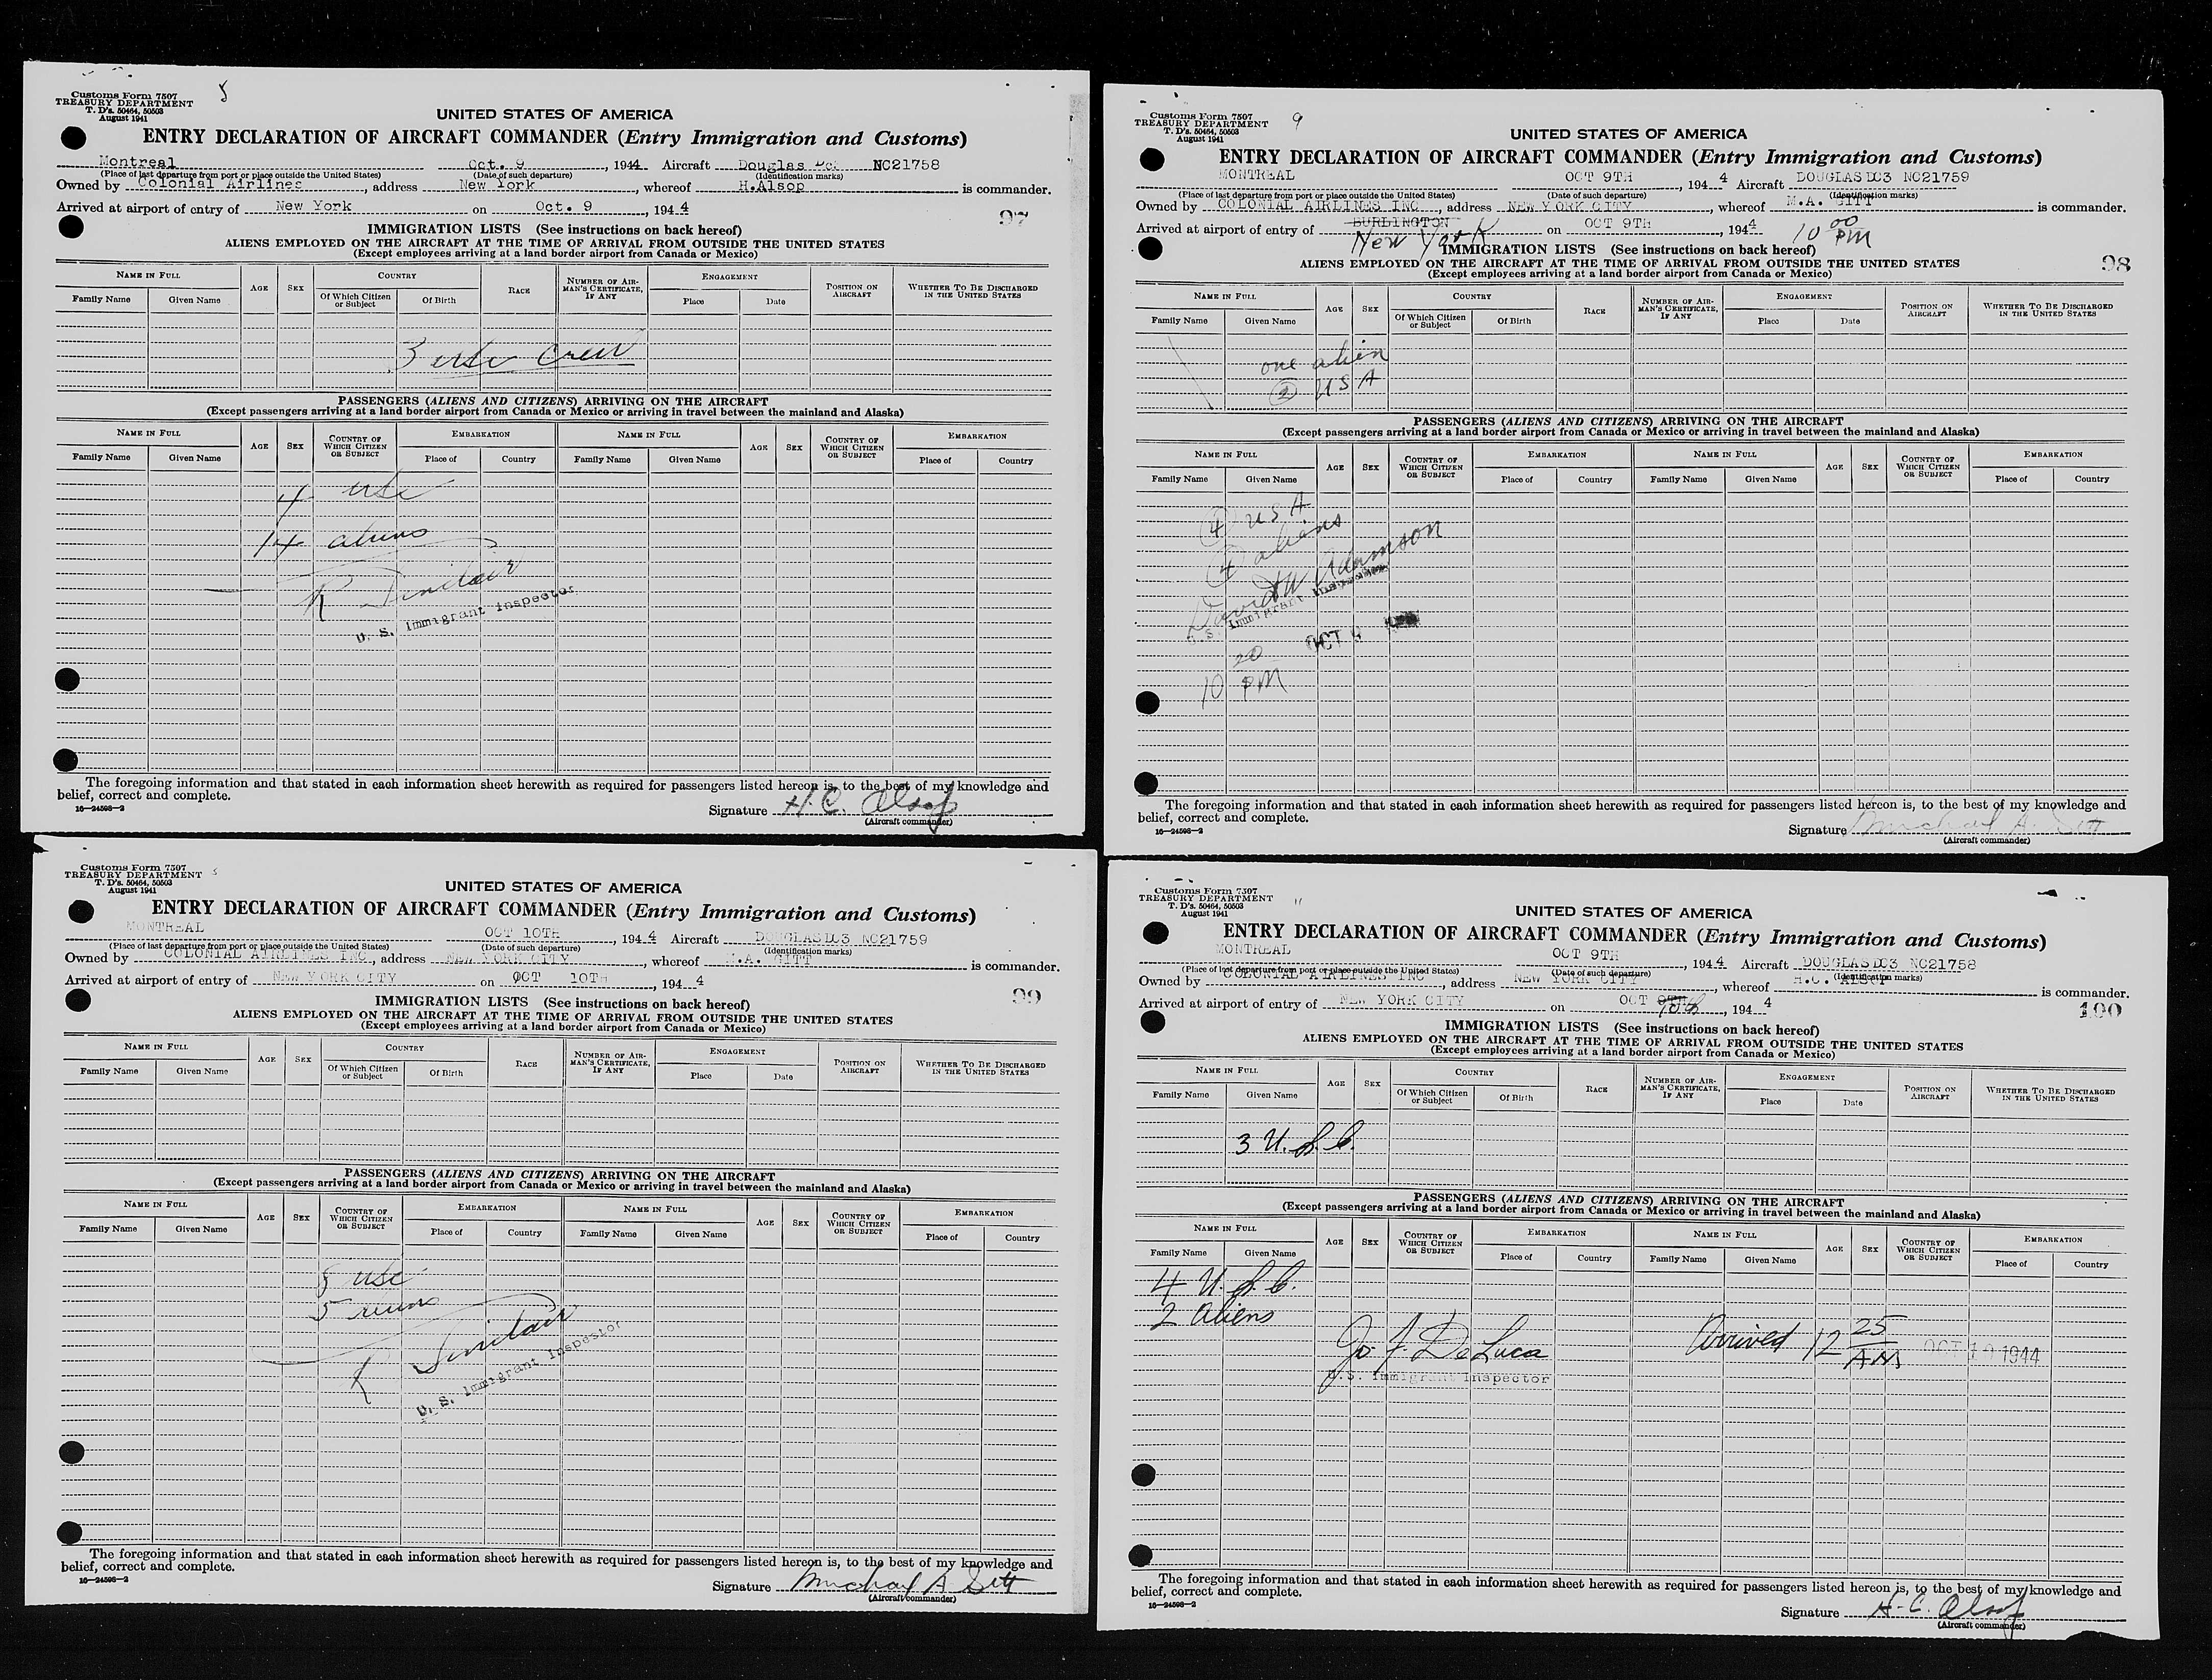 Customs Form 7507
TREASURY DEPARTMENT
T. D's. 50464, 50503
August 1941
5
UNITED STATES OF AMERICA
ENTRY DECLARATION OF AIRCRAFT COMMANDER (Entry Immigration and Customs)
Montreal Oct. 9, 1944 Aircraft Douglas NC21758
(Place of last departure from port or place outside the United States) (Date of such departure) (Identification marks)
Owned by Colonial Airlines, address New York, whereof H.Alsop is commander.
Arrived at airport of entry of New York on Oct. 9, 1944
97
IMMIGRATION LISTS (See instructions on back hereof)
ALIENS EMPLOYED ON THE AIRCRAFT AT THE TIME OF ARRIVAL FROM OUTSIDE THE UNITED STATES
(Except employees arriving at a land border airport from Canada or Mexico)
NAME IN FULL AGE SEX COUNTRY RACE NUMBER OF AIRMAN'S CERTIFICATE, IF ANY ENGAGEMENT POSITION ON AIRCRAFT WHETHER TO BE DISCHARGED IN THE UNITED STATES
Family Name Given Name Of Which Citizen or Subject Of Birth Place Date
3 usc crew
PASSENGERS (ALIENS AND CITIZENS) ARRIVING ON THE AIRCRAFT
(Except passengers arriving at a land border airport from Canada or Mexico or arriving in travel between the mainland and Alaska)
NAME IN FULL AGE SEX COUNTRY OF WHICH CITIZEN OR SUBJECT EMBARKATION NAME IN FULL AGE SEX COUNTRY OF WHICH CITIZEN OR SUBJECT EMBARKATION
Family Name Given Name Place of Country Family Name Given Name Place of Country
4 usc
14 aliens
R Sinclair
U. S. Immigrant Inspector
The foregoing information and that stated in each information sheet herewith as required for passengers listed hereon is, to the best of my knowledge and
belief, correct and complete.
16—24598-2
Signature H. C. Alsop
(Aircraft commander)
Customs Form 7507
TREASURY DEPARTMENT
T. D's. 50464, 50503
August 1941
9
UNITED STATES OF AMERICA
ENTRY DECLARATION OF AIRCRAFT COMMANDER (Entry Immigration and Customs)
MONTREAL OCT 9TH, 1944 Aircraft DOUGLAS DC3 NC21759
(Place of last departure from port or place outside the United States) (Date of such departure) (Identification marks)
Owned by COLONIAL AIRLINES INC, address NEW YORK CITY, whereof M.A. GITT is commander.
Arrived at airport of entry of BURLINGTON on OCT 9TH, 1944
New York 10 00 PM
98
IMMIGRATION LISTS (See instructions on back hereof)
ALIENS EMPLOYED ON THE AIRCRAFT AT THE TIME OF ARRIVAL FROM OUTSIDE THE UNITED STATES
(Except employees arriving at a land border airport from Canada or Mexico)
NAME IN FULL AGE SEX COUNTRY RACE NUMBER OF AIRMAN'S CERTIFICATE, IF ANY ENGAGEMENT POSITION ON AIRCRAFT WHETHER TO BE DISCHARGED IN THE UNITED STATES
Family Name Given Name Of Which Citizen or Subject Of Birth Place Date
one alien
2 USA
PASSENGERS (ALIENS AND CITIZENS) ARRIVING ON THE AIRCRAFT
(Except passengers arriving at a land border airport from Canada or Mexico or arriving in travel between the mainland and Alaska)
NAME IN FULL AGE SEX COUNTRY OF WHICH CITIZEN OR SUBJECT EMBARKATION NAME IN FULL AGE SEX COUNTRY OF WHICH CITIZEN OR SUBJECT EMBARKATION
Family Name Given Name Place of Country Family Name Given Name Place of Country
4 USA
4 aliens
David W Adamson
U. S. Immigrant Inspector
OCT 9
10 20 PM
The foregoing information and that stated in each information sheet herewith as required for passengers listed hereon is, to the best of my knowledge and
belief, correct and complete.
16—24598-2
Signature Michael A. Gitt
(Aircraft commander)
Customs Form 7507
TREASURY DEPARTMENT
T. D's. 50464, 50503
August 1941
UNITED STATES OF AMERICA
ENTRY DECLARATION OF AIRCRAFT COMMANDER (Entry Immigration and Customs)
MONTREAL OCT 10TH, 1944 Aircraft DOUGLAS DC3 NC21759
(Place of last departure from port or place outside the United States) (Date of such departure) (Identification marks)
Owned by COLONIAL AIRLINES INC, address NEW YORK CITY, whereof M.A. GITT is commander.
Arrived at airport of entry of NEW YORK CITY on OCT 10TH, 1944
99
IMMIGRATION LISTS (See instructions on back hereof)
ALIENS EMPLOYED ON THE AIRCRAFT AT THE TIME OF ARRIVAL FROM OUTSIDE THE UNITED STATES
(Except employees arriving at a land border airport from Canada or Mexico)
NAME IN FULL AGE SEX COUNTRY RACE NUMBER OF AIRMAN'S CERTIFICATE, IF ANY ENGAGEMENT POSITION ON AIRCRAFT WHETHER TO BE DISCHARGED IN THE UNITED STATES
Family Name Given Name Of Which Citizen or Subject Of Birth Place Date
PASSENGERS (ALIENS AND CITIZENS) ARRIVING ON THE AIRCRAFT
(Except passengers arriving at a land border airport from Canada or Mexico or arriving in travel between the mainland and Alaska)
NAME IN FULL AGE SEX COUNTRY OF WHICH CITIZEN OR SUBJECT EMBARKATION NAME IN FULL AGE SEX COUNTRY OF WHICH CITIZEN OR SUBJECT EMBARKATION
Family Name Given Name Place of Country Family Name Given Name Place of Country
8 usc
5 aliens
R Sinclair
U. S. Immigrant Inspector
The foregoing information and that stated in each information sheet herewith as required for passengers listed hereon is, to the best of my knowledge and
belief, correct and complete.
16—24598-2
Signature Michael A Gitt
(Aircraft commander)
Customs Form 7507
TREASURY DEPARTMENT
T. D's. 50464, 50503
August 1941
11
UNITED STATES OF AMERICA
ENTRY DECLARATION OF AIRCRAFT COMMANDER (Entry Immigration and Customs)
MONTREAL OCT 9TH, 1944 Aircraft DOUGLAS DC3 NC21758
(Place of last departure from port or place outside the United States) (Date of such departure) (Identification marks)
Owned by COLONIAL AIRLINES INC, address NEW YORK CITY, whereof H.C. ALSOP is commander.
Arrived at airport of entry of NEW YORK CITY on OCT 9TH 10th, 1944
100
IMMIGRATION LISTS (See instructions on back hereof)
ALIENS EMPLOYED ON THE AIRCRAFT AT THE TIME OF ARRIVAL FROM OUTSIDE THE UNITED STATES
(Except employees arriving at a land border airport from Canada or Mexico)
NAME IN FULL AGE SEX COUNTRY RACE NUMBER OF AIRMAN'S CERTIFICATE, IF ANY ENGAGEMENT POSITION ON AIRCRAFT WHETHER TO BE DISCHARGED IN THE UNITED STATES
Family Name Given Name Of Which Citizen or Subject Of Birth Place Date
3 U.S.C.
PASSENGERS (ALIENS AND CITIZENS) ARRIVING ON THE AIRCRAFT
(Except passengers arriving at a land border airport from Canada or Mexico or arriving in travel between the mainland and Alaska)
NAME IN FULL AGE SEX COUNTRY OF WHICH CITIZEN OR SUBJECT EMBARKATION NAME IN FULL AGE SEX COUNTRY OF WHICH CITIZEN OR SUBJECT EMBARKATION
Family Name Given Name Place of Country Family Name Given Name Place of Country
4 U.S.C.
2 Aliens
Jo. J. DeLuca Arrived 12 25 AM OCT 10 1944
U.S. Immigrant Inspector
The foregoing information and that stated in each information sheet herewith as required for passengers listed hereon is, to the best of my knowledge and
belief, correct and complete.
16—24598-2
Signature H. C. Alsop
(Aircraft commander)